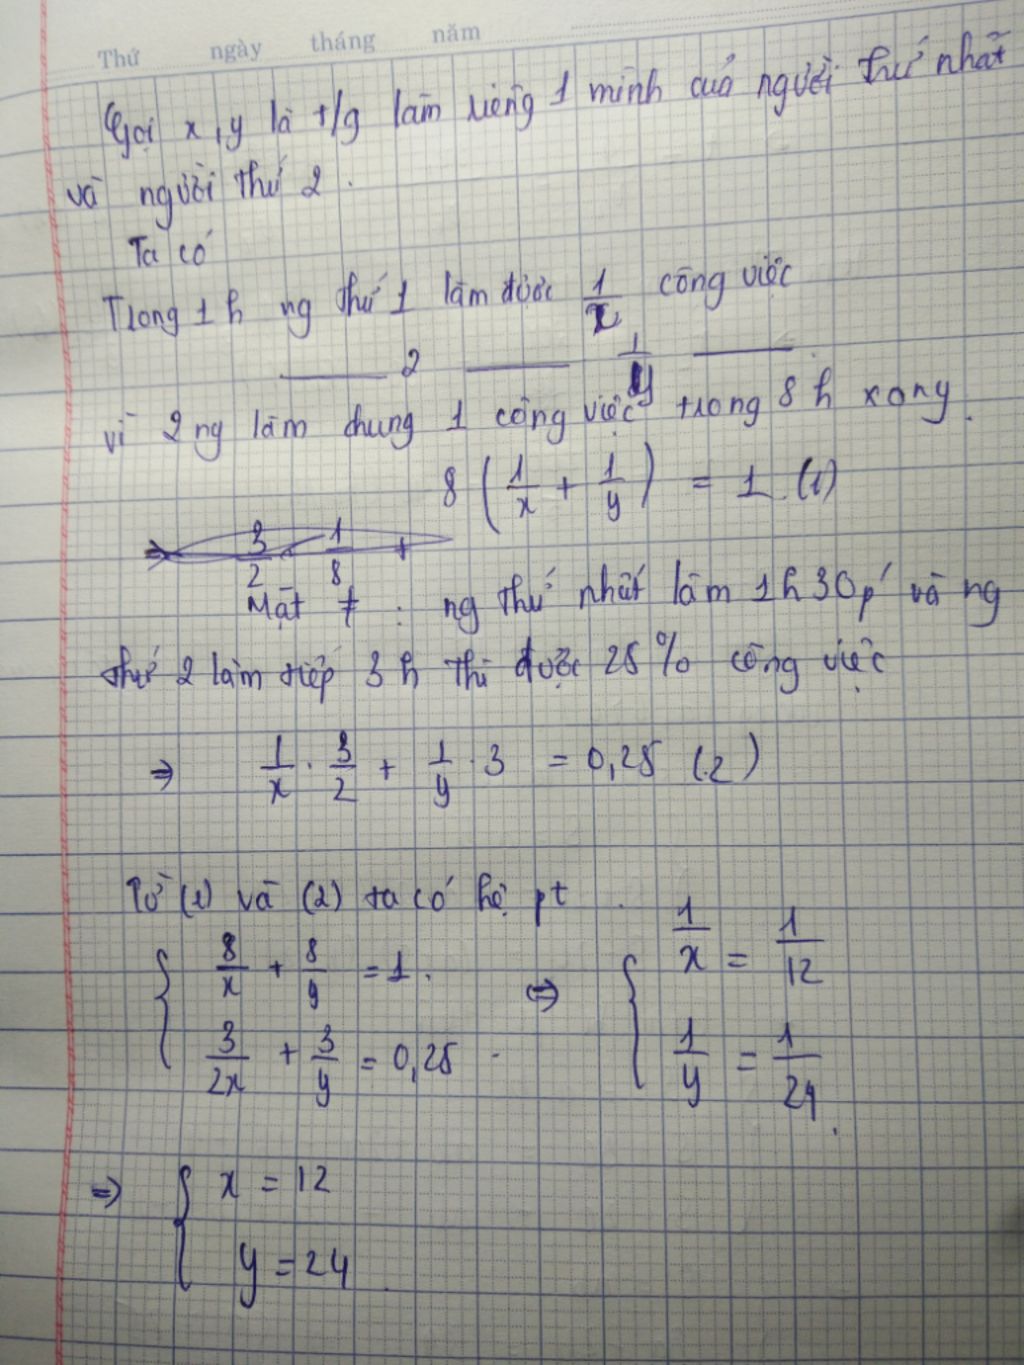 Thứ ngày tháng năm
Gọi x, y là t/g làm riêng 1 mình của người thứ nhất
và người thứ 2.
Ta có
Trong 1h ng thứ 1 làm được 1/x công việc
——— 2 ——— 1/y ———.
vì 2 ng làm chung 1 công việc trong 8h xong.
8 (1/x + 1/y) = 1 (1)
⇒ 3/2 . 1/8 +
Mặt ≠ : ng thứ nhất làm 1h30p' và ng
thứ 2 làm tiếp 3h thì được 25% công việc
⇒ 1/x . 3/2 + 1/y . 3 = 0,25 (2)
Từ (1) và (2) ta có hệ pt
{ 8/x + 8/y = 1. ⇔ { 1/x = 1/12
3/2x + 3/y = 0,25 1/y = 1/24.
⇒ { x = 12
y = 24.